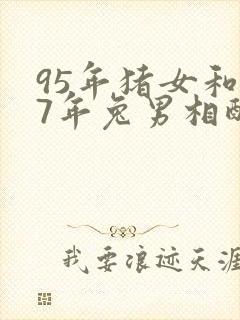 95年猪女和
7年兔男相配
我要浪迹天涯